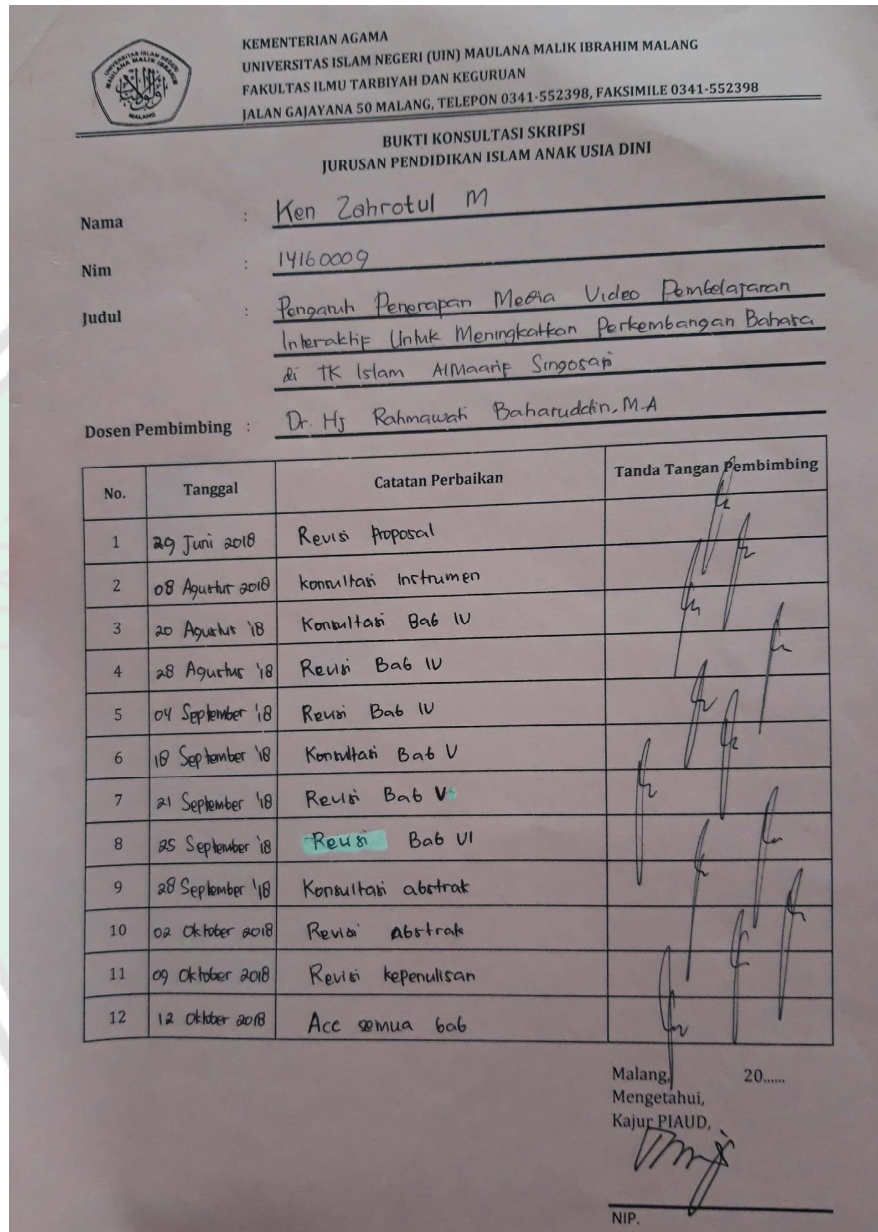 UNIVERSITAS ISLAM NEGERI
MAULANA MALIK IBRAHIM
MALANG
KEMENTERIAN AGAMA
UNIVERSITAS ISLAM NEGERI (UIN) MAULANA MALIK IBRAHIM MALANG
FAKULTAS ILMU TARBIYAH DAN KEGURUAN
JALAN GAJAYANA 50 MALANG, TELEPON 0341-552398, FAKSIMILE 0341-552398
BUKTI KONSULTASI SKRIPSI
JURUSAN PENDIDIKAN ISLAM ANAK USIA DINI
Nama : Ken Zahrotul M
Nim : 14160009
Judul : Pengaruh Penerapan Media Video Pembelajaran
Interaktif Untuk Meningkatkan Perkembangan Bahasa
di TK Islam AlMaarif Singosari
Dosen Pembimbing : Dr. Hj Rahmawati Baharuddin, M.A
No. Tanggal Catatan Perbaikan Tanda Tangan Pembimbing
1 29 Juni 2018 Revisi Proposal
2 08 Agustus 2018 konsultasi Instrumen
3 20 Agustus '18 Konsultasi Bab IV
4 28 Agustus '18 Revisi Bab IV
5 04 September '18 Revisi Bab IV
6 18 September '18 Konsultasi Bab V
7 21 September '18 Revisi Bab V
8 25 September '18 Revisi Bab VI
9 28 September '18 Konsultasi abstrak
10 02 Oktober 2018 Revisi Abstrak
11 09 Oktober 2018 Revisi kepenulisan
12 12 Oktober 2018 Acc semua bab
Malang, 20......
Mengetahui,
Kajur PIAUD,
NIP.